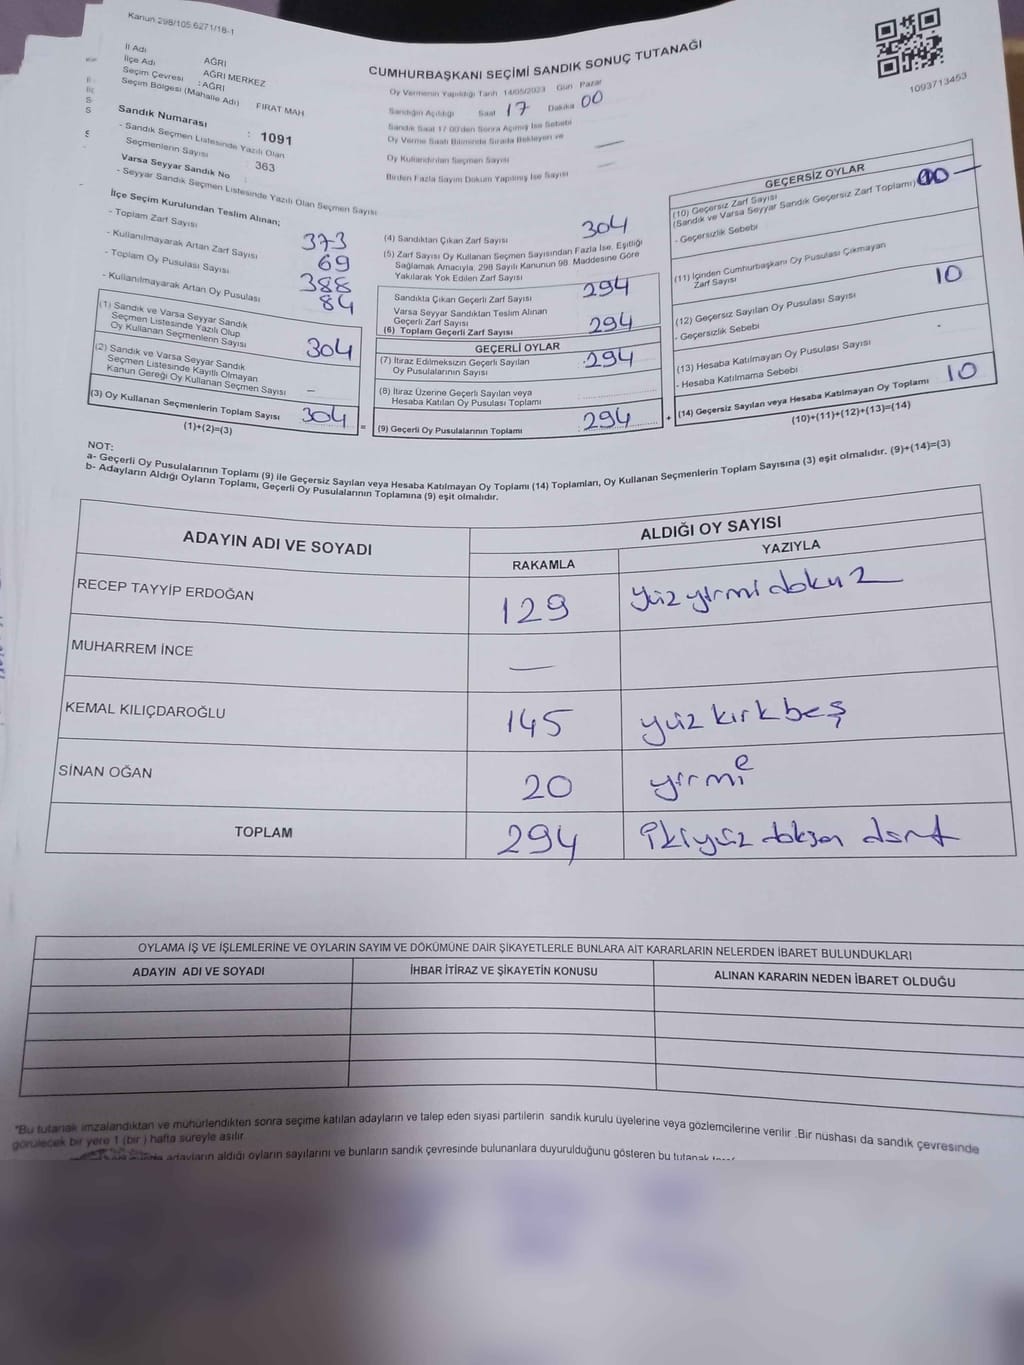 Kanun 298/105.6271/18-1
İl Adı AĞRI
İlçe Adı AĞRI MERKEZ
Seçim Çevresi : AĞRI
Seçim Bölgesi (Mahalle Adı) FIRAT MAH
Sandık Numarası : 1091
- Sandık Seçmen Listesinde Yazılı Olan
Seçmenlerin Sayısı : 363
Varsa Seyyar Sandık No :
- Seyyar Sandık Seçmen Listesinde Yazılı Olan Seçmen Sayısı
CUMHURBAŞKANI SEÇİMİ SANDIK SONUÇ TUTANAĞI
Oy Vermenin Yapıldığı Tarih 14/05/2023 Gün Pazar
Sandığın Açıldığı Saat 17 Dakika 00
Sandık Saat 17:00'den Sonra Açılmış İse Sebebi
Oy Verme Saati Bitiminde Sırada Bekleyen ve —
Oy Kullandırılan Seçmen Sayısı —
Birden Fazla Sayım Döküm Yapılmış İse Sayısı
1093713453
İlçe Seçim Kurulundan Teslim Alınan;
- Toplam Zarf Sayısı 373
- Kullanılmayarak Artan Zarf Sayısı 69
- Toplam Oy Pusulası Sayısı 388
- Kullanılmayarak Artan Oy Pusulası 84
(1) Sandık ve Varsa Seyyar Sandık
Seçmen Listesinde Yazılı Olup
Oy Kullanan Seçmenlerin Sayısı 304
(2) Sandık ve Varsa Seyyar Sandık
Seçmen Listesinde Kayıtlı Olmayan
Kanun Gereği Oy Kullanan Seçmen Sayısı —
(3) Oy Kullanan Seçmenlerin Toplam Sayısı 304 =
(1)+(2)=(3)
(4) Sandıktan Çıkan Zarf Sayısı 304
(5) Zarf Sayısı Oy Kullanan Seçmen Sayısından Fazla İse, Eşitliği
Sağlamak Amacıyla; 298 Sayılı Kanunun 98. Maddesine Göre
Yakılarak Yok Edilen Zarf Sayısı
Sandıkta Çıkan Geçerli Zarf Sayısı 294
Varsa Seyyar Sandıktan Teslim Alınan
Geçerli Zarf Sayısı
(6) Toplam Geçerli Zarf Sayısı 294
GEÇERLİ OYLAR
(7) İtiraz Edilmeksizin Geçerli Sayılan
Oy Pusulalarının Sayısı : 294
(8) İtiraz Üzerine Geçerli Sayılan veya
Hesaba Katılan Oy Pusulası Toplamı
(9) Geçerli Oy Pusulalarının Toplamı : 294 +
GEÇERSİZ OYLAR
(10) Geçersiz Zarf Sayısı
(Sandık ve Varsa Seyyar Sandık Geçersiz Zarf Toplamı) —
- Geçersizlik Sebebi
(11) İçinden Cumhurbaşkanı Oy Pusulası Çıkmayan
Zarf Sayısı
(12) Geçersiz Sayılan Oy Pusulası Sayısı 10
- Geçersizlik Sebebi
(13) Hesaba Katılmayan Oy Pusulası Sayısı
- Hesaba Katılmama Sebebi
(14) Geçersiz Sayılan veya Hesaba Katılmayan Oy Toplamı 10
(10)+(11)+(12)+(13)=(14)
NOT:
a- Geçerli Oy Pusulalarının Toplamı (9) ile Geçersiz Sayılan veya Hesaba Katılmayan Oy Toplamı (14) Toplamları, Oy Kullanan Seçmenlerin Toplam Sayısına (3) eşit olmalıdır. (9)+(14)=(3)
b- Adayların Aldığı Oyların Toplamı, Geçerli Oy Pusulalarının Toplamına (9) eşit olmalıdır.
ADAYIN ADI VE SOYADI ALDIĞI OY SAYISI
RAKAMLA YAZIYLA
RECEP TAYYİP ERDOĞAN 129 yüzyirmidokuz
MUHARREM İNCE —
KEMAL KILIÇDAROĞLU 145 yüzkırkbeş
SİNAN OĞAN 20 yirmi
TOPLAM 294 ikiyüz doksan dört
OYLAMA İŞ VE İŞLEMLERİNE VE OYLARIN SAYIM VE DÖKÜMÜNE DAİR ŞİKAYETLERLE BUNLARA AİT KARARLARIN NELERDEN İBARET BULUNDUKLARI
ADAYIN ADI VE SOYADI İHBAR İTİRAZ VE ŞİKAYETİN KONUSU ALINAN KARARIN NEDEN İBARET OLDUĞU
*Bu tutanak imzalandıktan ve mühürlendikten sonra seçime katılan adayların ve talep eden siyasi partilerin sandık kurulu üyelerine veya gözlemcilerine verilir .Bir nüshası da sandık çevresinde
görülecek bir yere 1 (bir) hafta süreyle asılır.
adayların aldığı oyların sayılarını ve bunların sandık çevresinde bulunanlara duyurulduğunu gösteren bu tutanak